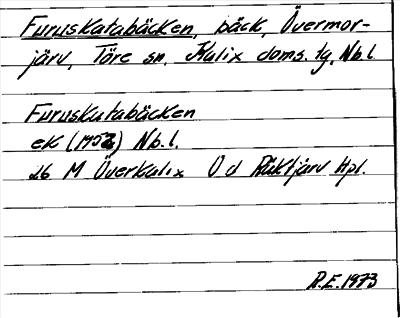 Furuskatabäcken, bäck, Övermor-
järv, Töre sn, Kalix doms. tg, Nb.l.
Furuskatabäcken
ek (1952) Nb.l.
26 M Överkalix Ö d Räktjärv Hpl.
R.E. 1973